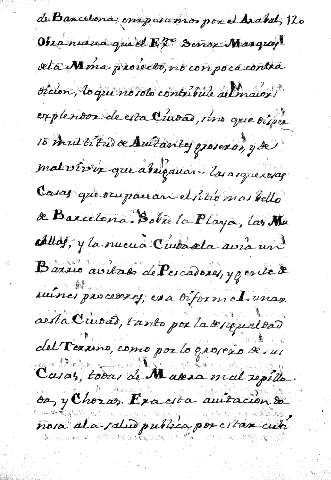 de Barcelona, empesamos por el Arabal, 120
Obra nueva que el Ex.mo Señor Marques
de la Mina proiectó, no con poca contra
dicion, lo que no solo contribuie al maior
explendor de esta Ciudad, sino que disper
só multitud de Avitantes groseros, y de
mal vivir que abrigavan las asquerosas
Casas que ocupavan el sitio mas bello
de Barcelona. Sobre la Playa, las Mu
rallas, y la nueva Ciudadela avia un
Barrio avitado de Pescadores, y gente de
ruines procederes; era disforme lunar
a esta Ciudad, tanto por la desigualdad
del Terreno, como por lo grosero de sus
Casas, todas de Madera mal repilla
da, y Chozas. Era esta avitacion da
ñosa a la salud publica por estar cubi